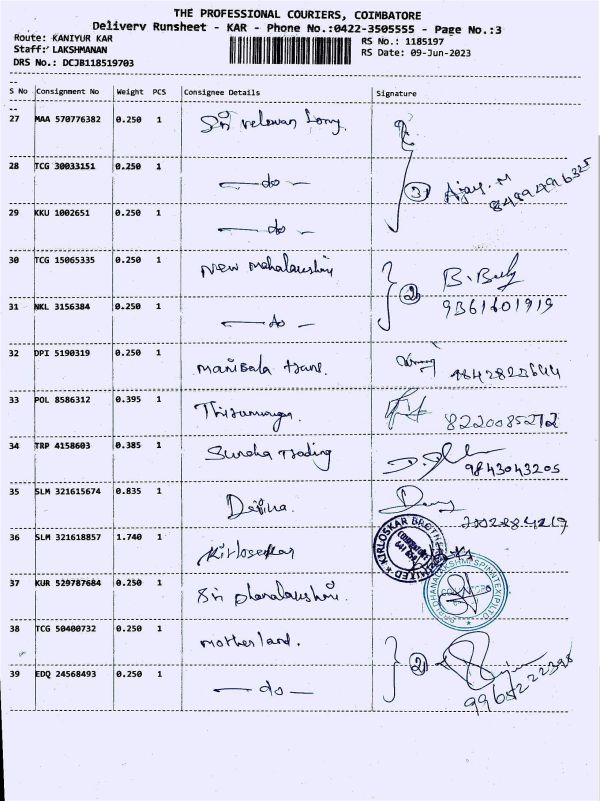 THE PROFESSIONAL COURIERS, COIMBATORE
Delivery Runsheet - KAR - Phone No.:0422-3505555 - Page No.:3
Route: KANIYUR KAR
RS No.: 1185197
Staff: LAKSHMANAN
RS Date: 09-Jun-2023
DRS No.: DCJB118519703
S No Consignment No Weight PCS Consignee Details Signature
27 MAA 570776382 0.250 1 Sri velavan
28 TCG 30033151 0.250 1 — do — 3 Ajay. M
29 KKU 1002651 0.250 1 — do —
30 TCG 15065335 0.250 1 New mahalaxshmi 2
31 NKL 3156384 0.250 1 — do — 9361601919
32 DPI 5190319 0.250 1 Manibala trans.
33 POL 8586312 0.395 1 8220085272
34 TRP 4158603 0.385 1 Trading 9843043205
35 SLM 321615674 0.835 1
36 SLM 321618857 1.740 1 KIRLOSKAR BROTHERS LIMITED
37 KUR 529787684 0.250 1 Sri
38 TCG 50400732 0.250 1 motherland. 2
39 EDQ 24568493 0.250 1 — do —